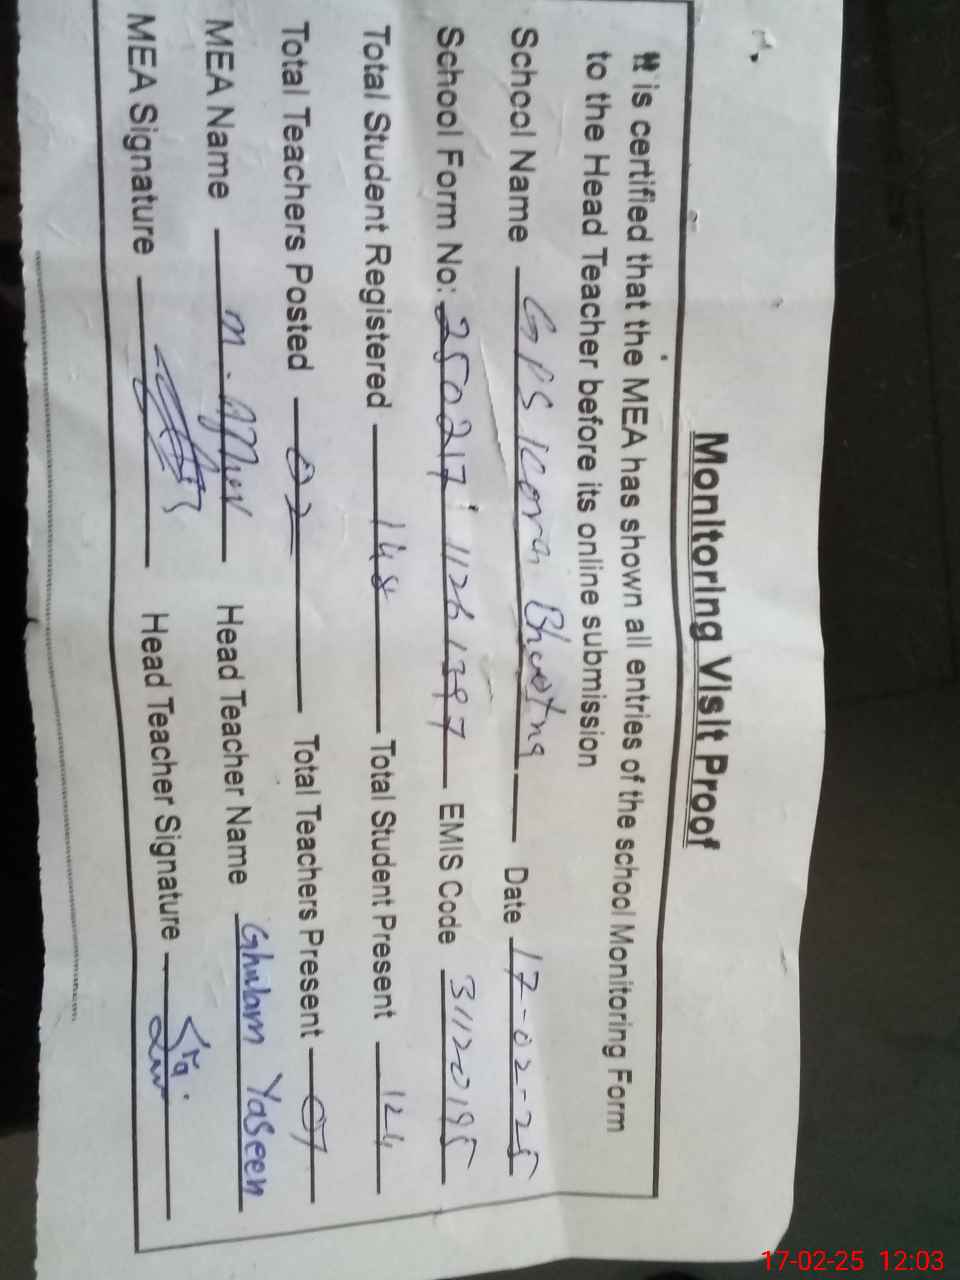 Monitoring Visit Proof
It is certified that the MEA has shown all entries of the school Monitoring Form
to the Head Teacher before its online submission
School Name GPS Kora Bhootna Date 17-02-25
School Form No: 250217 1126 1397 EMIS Code 31120195
Total Student Registered 148 Total Student Present 124
Total Teachers Posted 02 Total Teachers Present 01
MEA Name M. Head Teacher Name Ghulam Yaseen
MEA Signature Head Teacher Signature
17-02-25 12:03